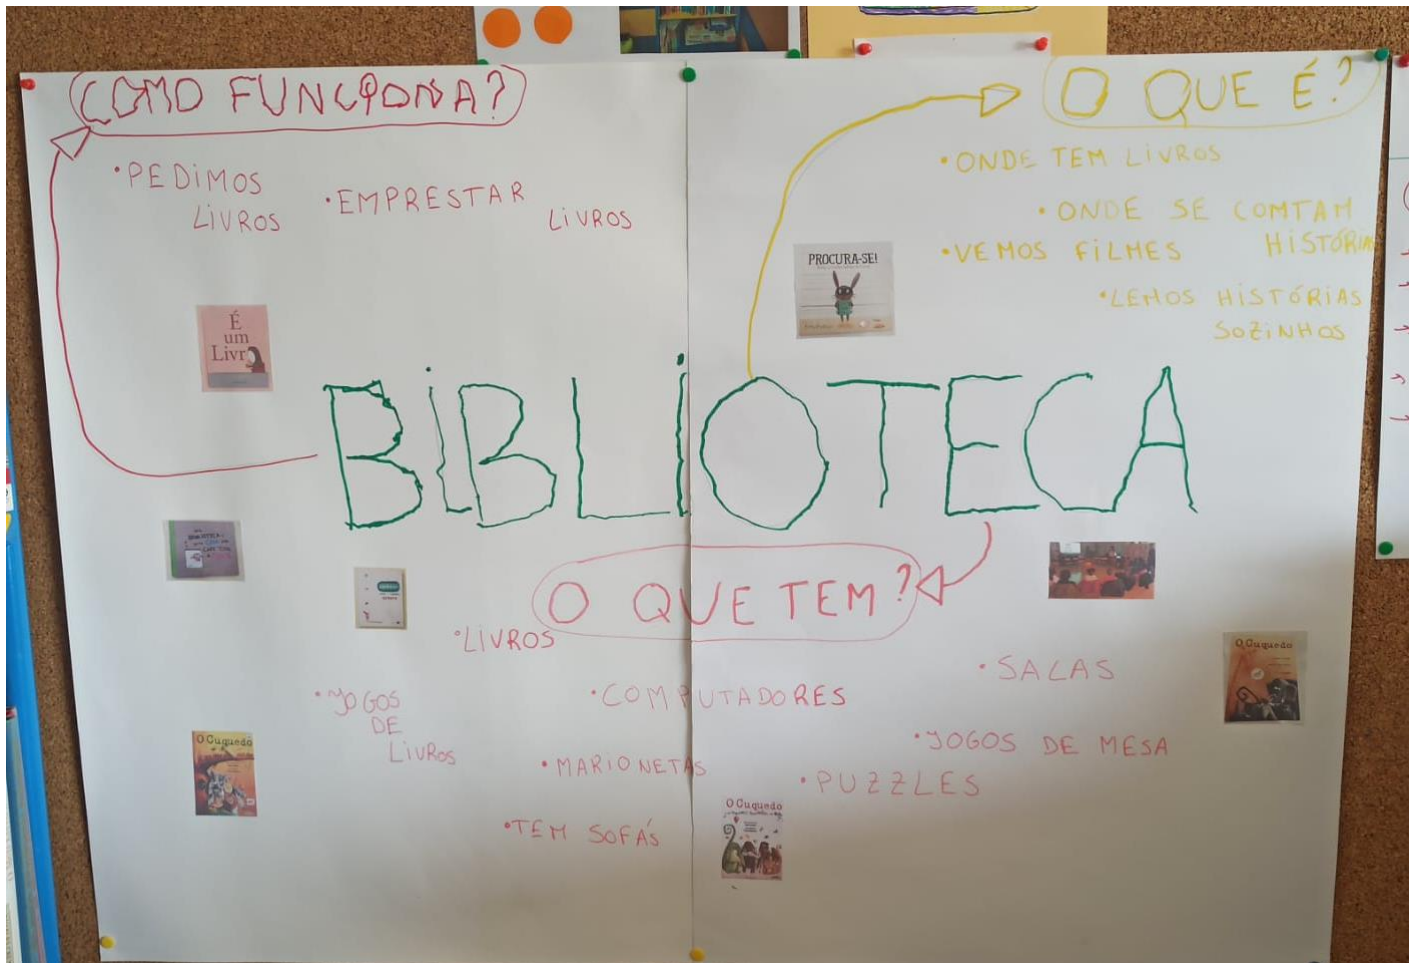 COMO FUNCIONA?
• PEDIMOS
LIVROS
• EMPRESTAR
LIVROS
O QUE É?
• ONDE TEM LIVROS
• ONDE SE COMTAM
HISTÓRIAS
• VEMOS FILMES
• LEMOS HISTÓRIAS
SOZINHOS
PROCURA-SE!
É
um
Livro
BIBLIOTECA
O QUE TEM?
• LIVROS
• JOGOS
DE
LIVROS
• COMPUTADORES
• MARIONETAS
• TEM SOFÁS
• SALAS
• JOGOS DE MESA
• PUZZLES
O Cuquedo
O Cuquedo
O Cuquedo